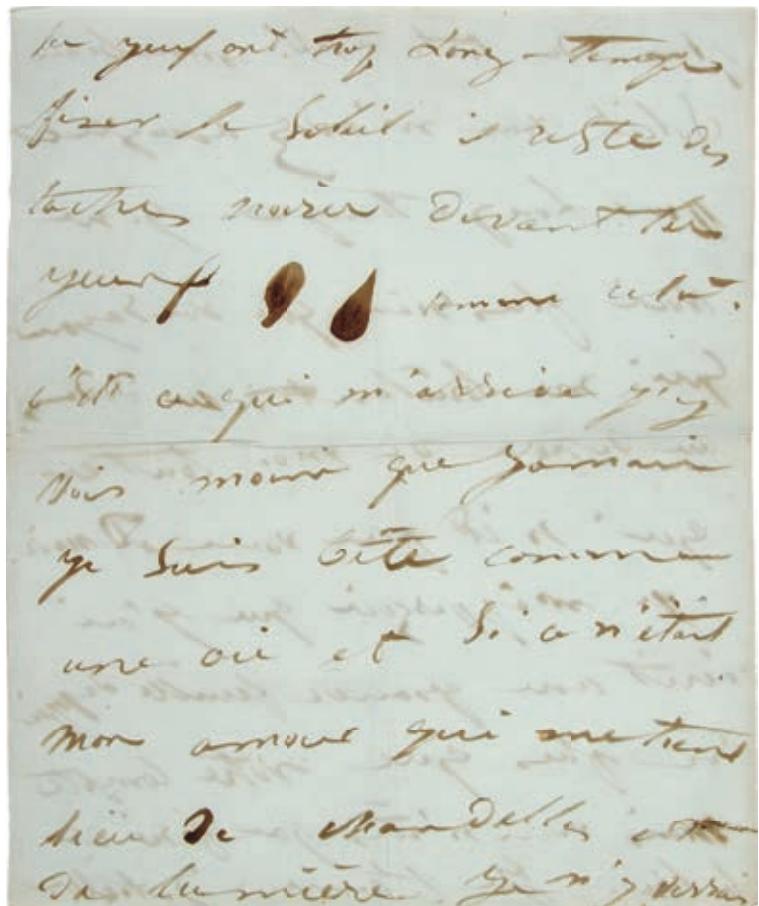 les yeux ont trop long-temps
fixer le soleil il reste des
taches noires devant les
yeux comme cela.
c'est ce qui m'arrive j'y
vois moins que jamais
je suis bête comme
une oie et si ce n'était
mon amour qui me tient
lieu de chandelles et
de lumière je n'y verrais